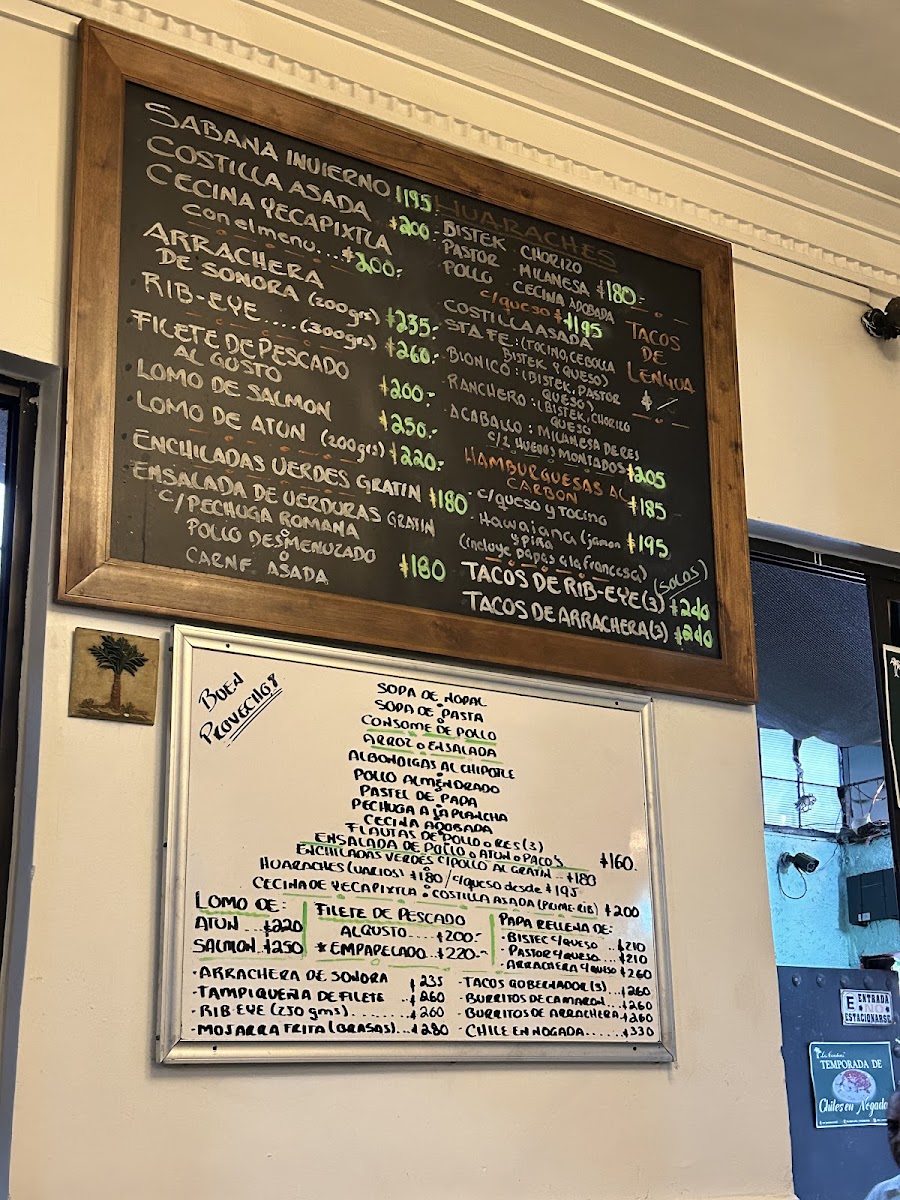 SABANA INVIERNO $195
COSTILLA ASADA $200.-
CECINA YECAPIXTLA
con el menu... $200.-
ARRACHERA
DE SONORA (200grs) $235.-
RIB-EYE.... (300grs) $260.-
FILETE DE PESCADO
AL GUSTO $200.-
LOMO DE SALMON $250.-
LOMO DE ATUN (200grs) $220.-
ENCHILADAS VERDES GRATIN $180
ENSALADA DE VERDURAS GRATIN
C/PECHUGA ROMANA
o
POLLO DESMENUZADO
o
CARNE ASADA $180
HUARACHES
BISTEK . CHORIZO
PASTOR . MILANESA $180.-
POLLO . CECINA ADOBADA
c/queso $195
COSTILLA ASADA
STA FE: (TOCINO, CEBOLLA
BISTEK Y QUESO)
BIONICO: (BISTEK, PASTOR
QUESO)
RANCHERO: (BISTEK, CHORIZO
QUESO
ACABALLO: MILANESA DE RES
C/2 HUEVOS MONTADOS $205
TACOS
DE
LENGUA
$ /
HAMBURGUESAS AL
CARBON
- c/queso y tocino $185
- Hawaiana (jamon
y piña $195
(incluye papas a la francesa)
TACOS DE RIB-EYE (3) (SOLOS) $240
TACOS DE ARRACHERA (3) $240
BUEN
PROVECHO!
SOPA DE NOPAL
o
SOPA DE PASTA
o
CONSOME DE POLLO
ARROZ o ENSALADA
ALBONDIGAS AL CHIPOTLE
POLLO ALMENDRADO
PASTEL DE PAPA
PECHUGA A LA PLANCHA
CECINA ADOBADA
FLAUTAS DE POLLO o RES (3)
ENSALADA DE POLLO o ATUN o PACOS $160.
ENCHILADAS VERDES C/POLLO AL GRATIN - $180
HUARACHES (VARIOS) $180 / c/queso desde $195
CECINA DE YECAPIXTLA o COSTILLA ASADA (PRIME-RIB) $200
LOMO DE:
ATUN ... $220
SALMON.. $250
FILETE DE PESCADO
AL GUSTO.... $200.-
* EMPAPELADO... $220.-
PAPA RELLENA DE:
- BISTEC C/QUESO .. $210
- PASTOR C/QUESO ... $210
- ARRACHERA C/QUESO $260
- ARRACHERA DE SONORA $235
- TAMPIQUEÑA DE FILETE .. $260
- RIB-EYE (250 gms)........ $260
- MOJARRA FRITA (BRASAS)... $280
- TACOS GOBERNADOR (3).. $260
- BURRITOS DE CAMARON... $260
- BURRITOS DE ARRACHERA $260
- CHILE EN NOGADA...... $330
E ENTRADA
NO
ESTACIONARSE
TEMPORADA DE
Chiles en Nogada